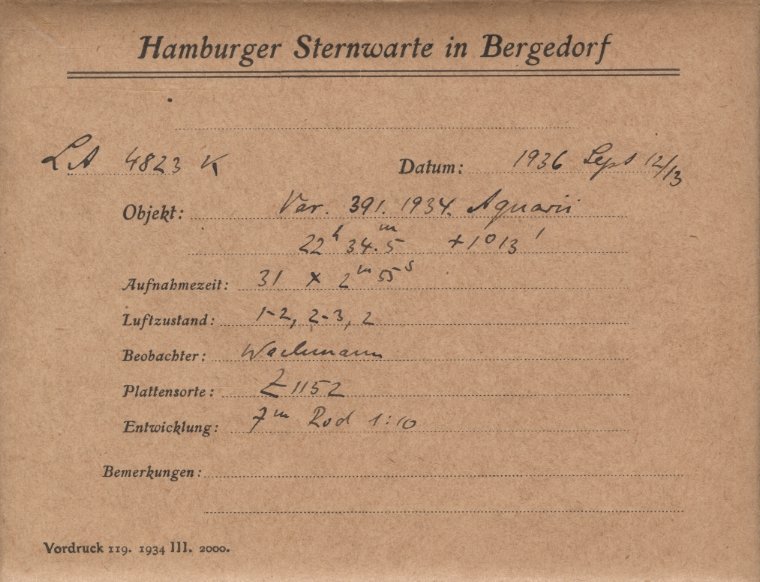 Hamburger Sternwarte in Bergedorf
LA 4823 K Datum: 1936 Sept 12/13
Objekt: Var. 391. 1934. Aquarii
22h 34.m5 +1°13'
Aufnahmezeit: 31 x 2m 55s
Luftzustand: 1-2, 2-3, 2
Beobachter: Wachmann
Plattensorte: Z 1152
Entwicklung: 7m Rod 1:10
Bemerkungen:
Vordruck 119. 1934 III. 2000.